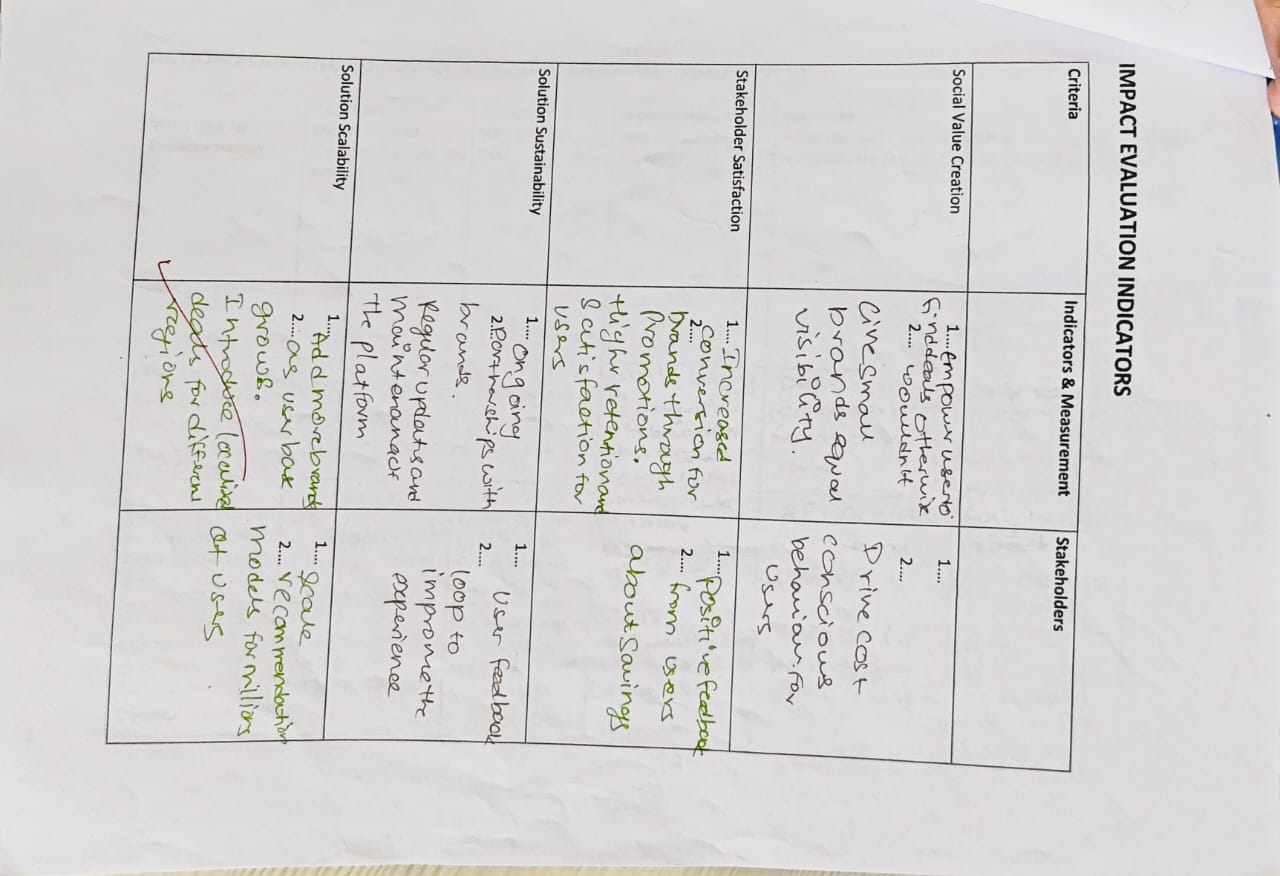 IMPACT EVALUATION INDICATORS
Criteria
Indicators & Measurement
Stakeholders
Social Value Creation
1.... Empower user to
find deals otherwise
2.... wouldn't
Give small
brands equal
visibility.
1....
2....
Drive cost
conscious
behaviour for
users
Stakeholder Satisfaction
1.... Increased
conversion for
2....
brands through
Promotions.
Higher retention and
Satisfaction for
users
1.... Positive feedback
2.... from users
about savings
Solution Sustainability
1.... Ongoing
2. Partnerships with
brands.
Regular updates and
maintenance of
the platform
1....
User feedback
2....
loop to
improve the
experience
Solution Scalability
1.... Add more brands
2.... as user base
grows.
Introduce localised
deals for different
regions
1.... Scale
2.... recommendation
models for millions
of users